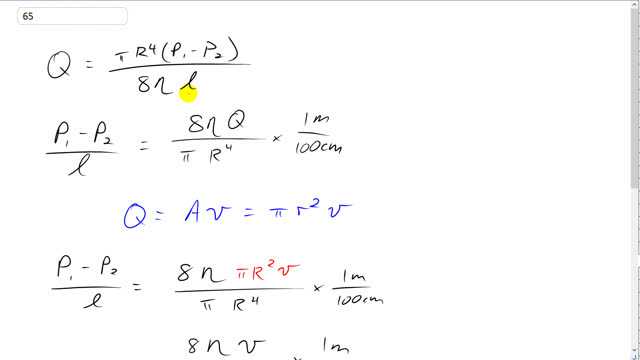 65
Q = πR⁴(P₁-P₂) / 8η l
P₁-P₂ / l = 8ηQ / πR⁴ × 1m / 100cm
Q = Av = πr²v
P₁-P₂ / l = 8η πR²v / πR⁴ × 1m / 100cm
8ηv × 1m